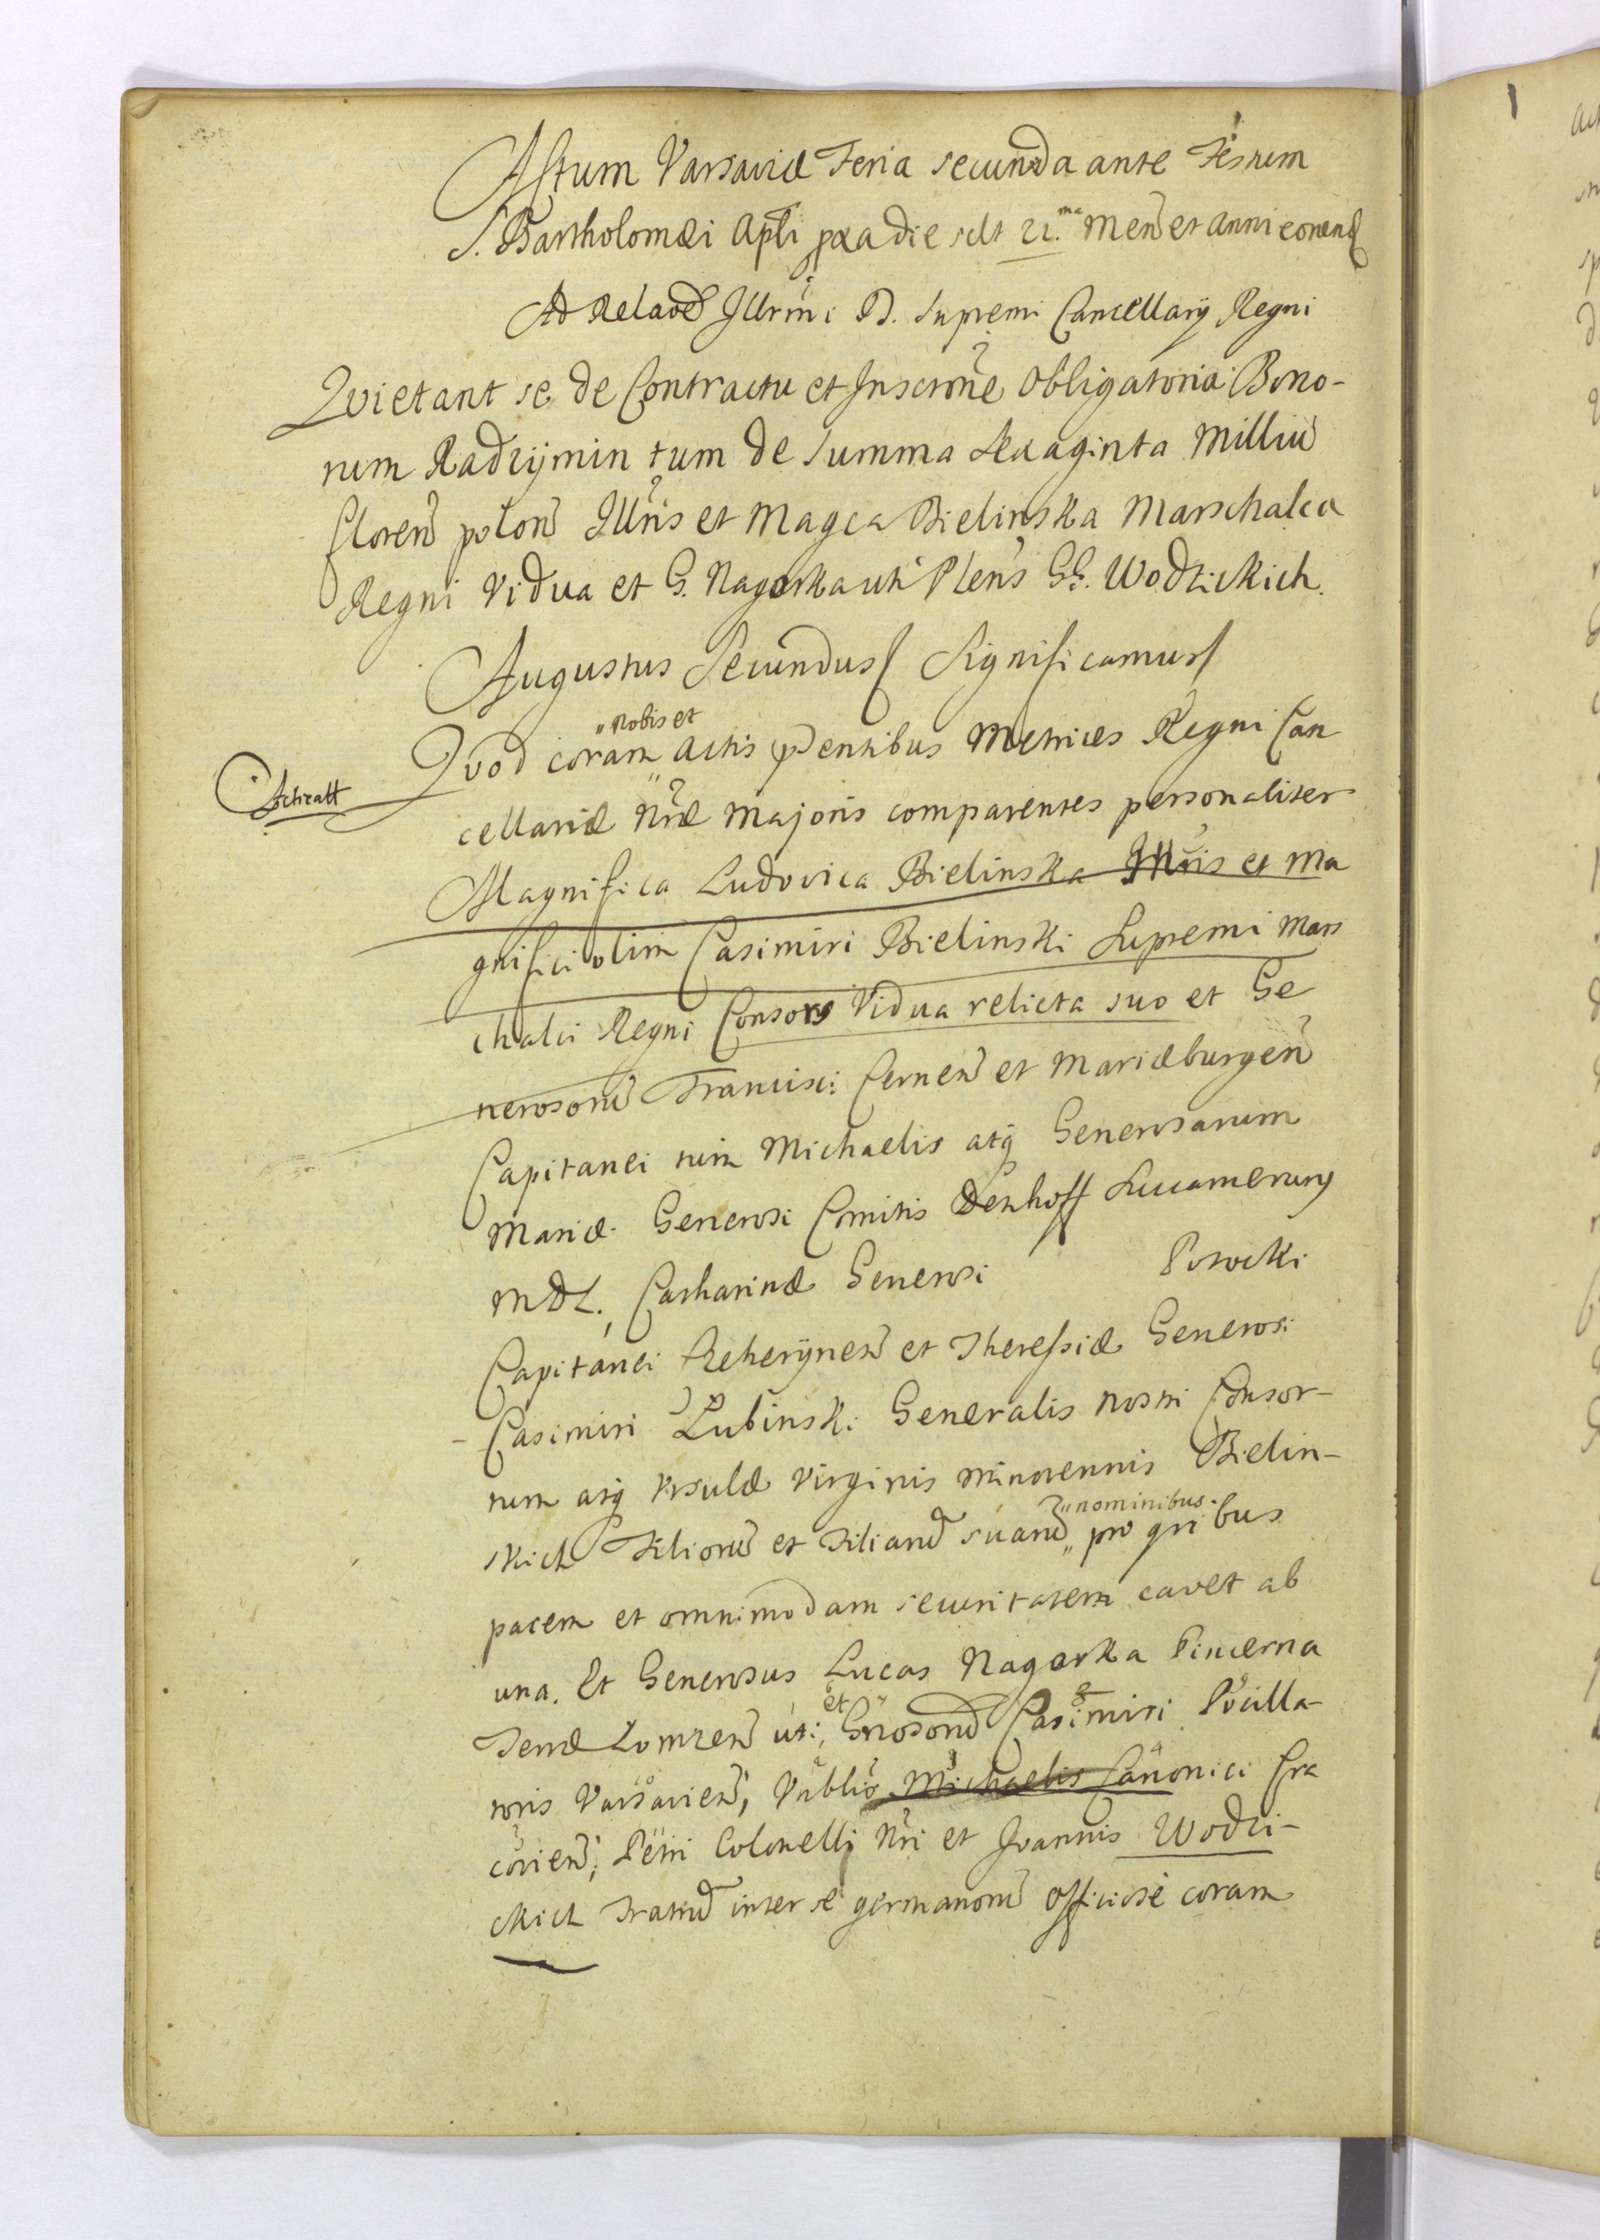 Actum Varsaviæ Feria secunda ante Festum
S. Bartholomæi Apli ipsa die sclt 21.ma Men̄ et Anni eorund
Ad Relaoē Illrmi D. Supremi Cancellarij Regni
Quietant se de Contractu et Inscrone Obligatoria Bono-
rum Radzijmin tum de Summa Sexaginta Milliū
floren̄ polon̄ Illris et Magca Bielinska Marschalca
Regni Vidua et G. Nagorka uti Plens GG. Wodzickich.
Augustus Secundus Significamus
„Nobis et
Quod coram „ Actis p̄sentibus Metrices Regni Can
cellariæ Nræ Majoris comparentes personaliter
Magnifica Ludovica Bielinska Illris et Ma
gnifici olim Casimiri Bielinski Supremi Mars
chalci Regni Consors Vidua relicta suo et Ge
nerosorū Francisci Cernen̄ et Mariæburgen̄
Capitanei tum Michaelis atq̄ Generosarum
Mariæ Generosi Comitis Denhoff Succamerarij
MDL. Catharinæ Generosi Potocki
Capitanei et Theressiæ Generosi
Casimiri Łubinski Generalis Nostri Consor-
tum atq̄ Vrsulæ Virginis Minorennis Bielin-
„nominibus.
skich Filiorū et Filiarū suarū „ pro qribus
pacem et omnimodam securitatem cavet ab
una. Et Generosus Lucas Nagorka Pincerna
et
Terræ Lomzen̄ uti, Gnrosorū Casimiri Pocilla-
toris Varsavien̄, Michaelis Canonici Cra
covien̄, Petri Colonelli Nri et Joannis Wodzi-
ckich Fratrū inter se germanorū Officiose coram